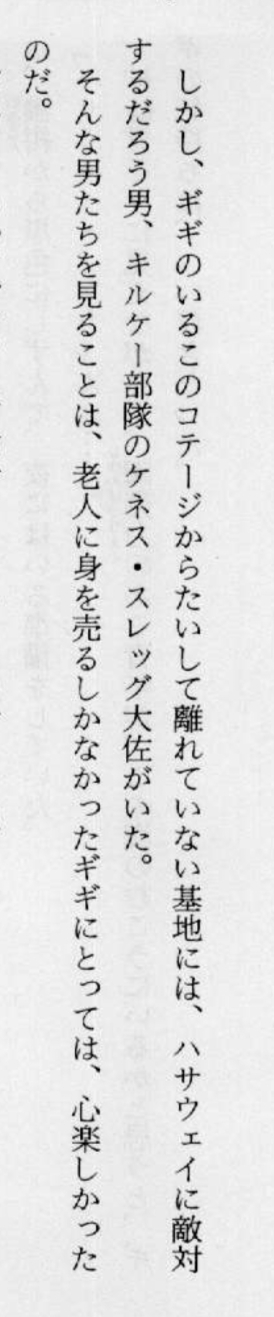 しかし、ギギのいるこのコテージからたいして離れていない基地には、ハサウェイに敵対
するだろう男、キルケー部隊のケネス・スレッグ大佐がいた。
そんな男たちを見ることは、老人に身を売るしかなかったギギにとっては、心楽しかった
のだ。